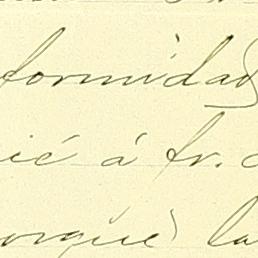 formidad
ié á fr.
orqué la